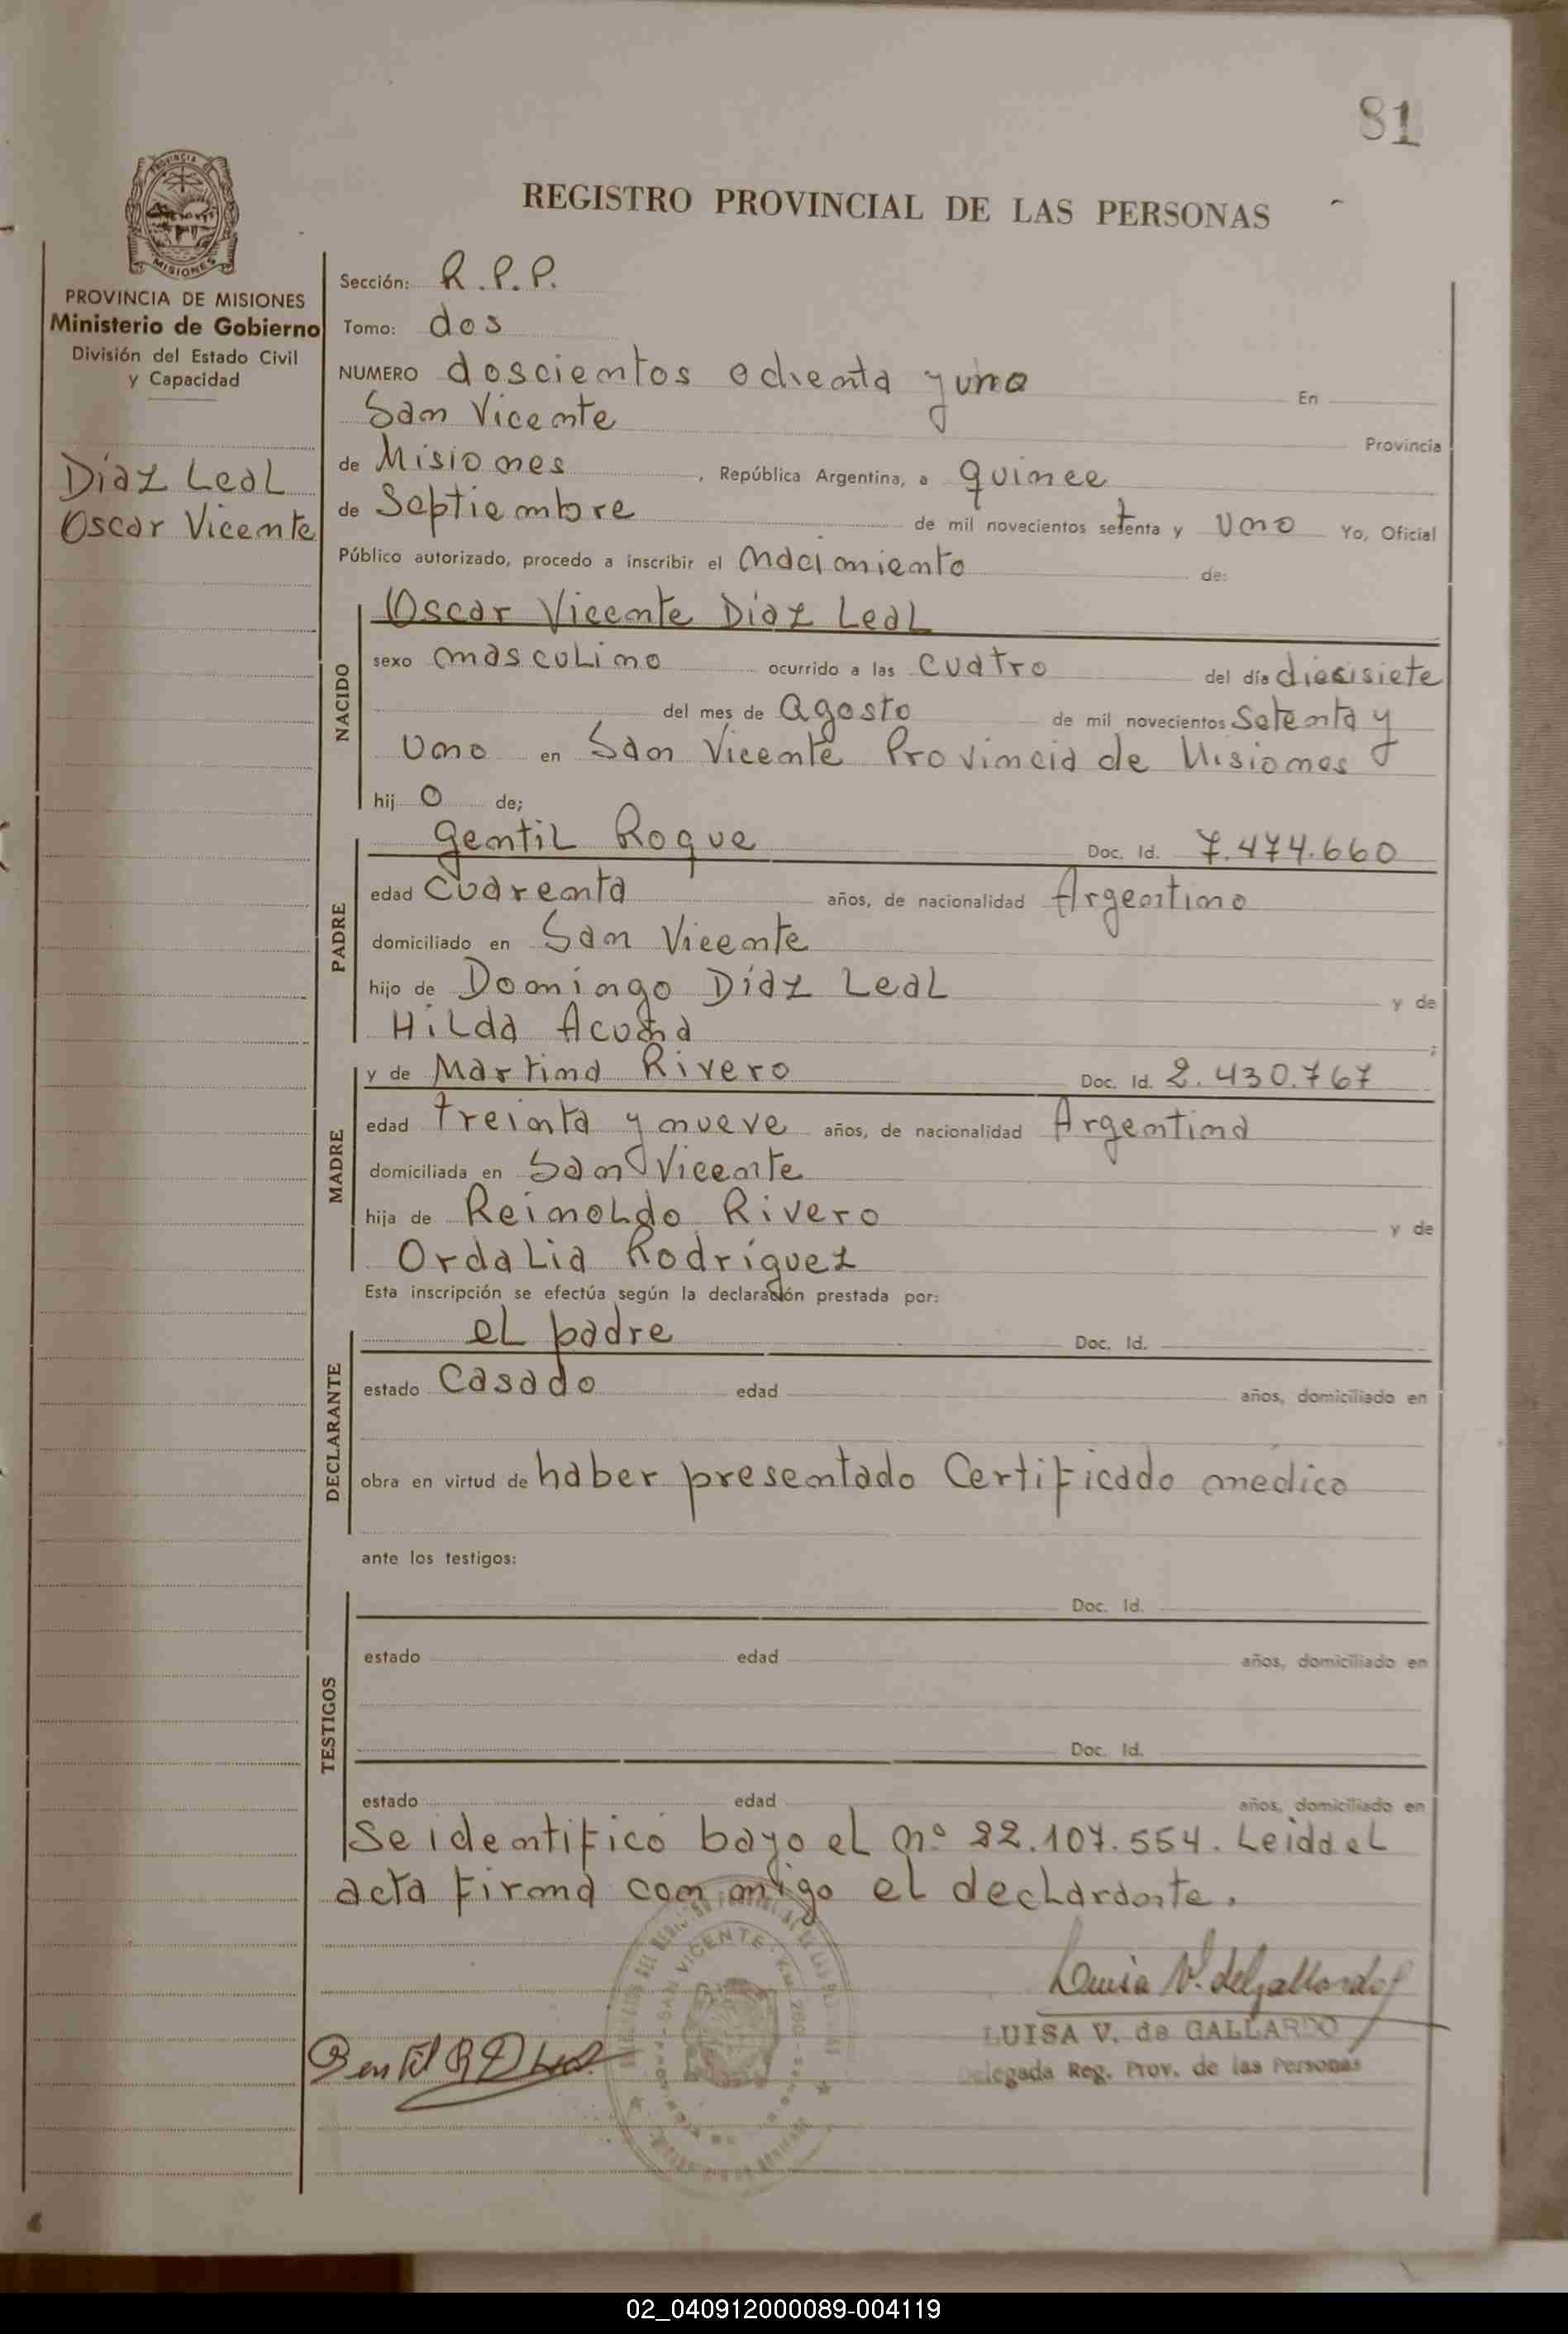 81
REGISTRO PROVINCIAL DE LAS PERSONAS
PROVINCIA
MISIONES
PROVINCIA DE MISIONES
Ministerio de Gobierno
División del Estado Civil
y Capacidad
Díaz Leal
Oscar Vicente
Sección: R.P.P.
Tomo: dos
NUMERO doscientos ochenta y uno En
San Vicente Provincia
de Misiones, República Argentina, a quince
de Septiembre de mil novecientos setenta y Uno Yo, Oficial
Público autorizado, procedo a inscribir el nacimiento de:
NACIDO
Oscar Vicente Díaz Leal
sexo masculino ocurrido a las cuatro del día diecisiete
del mes de Agosto de mil novecientos Setenta y
Uno en San Vicente Provincia de Misiones
hij o de;
PADRE
Gentil Roque Doc. Id. 7.474.660
edad cuarenta años, de nacionalidad Argentino
domiciliado en San Vicente
hijo de Domingo Díaz Leal y de
Hilda Acuña ;
MADRE
y de Martina Rivero Doc. Id. 2.430.767
edad treinta y nueve años, de nacionalidad Argentina
domiciliada en San Vicente
hija de Reinoldo Rivero y de
Ordalia Rodríguez
Esta inscripción se efectúa según la declaración prestada por:
DECLARANTE
el padre Doc. Id.
estado Casado edad años, domiciliado en
obra en virtud de haber presentado Certificado medico
ante los testigos:
TESTIGOS
Doc. Id.
estado edad años, domiciliado en
Doc. Id.
estado edad años, domiciliado en
Se identificó bajo el nº 22.107.554. Leida el
acta firma con migo el declarante.
SAN VICENTE
Luisa V. de Gallardo
LUISA V. de GALLARDO
Delegada Reg. Prov. de las Personas
Gentil R D Leal
02_040912000089-004119